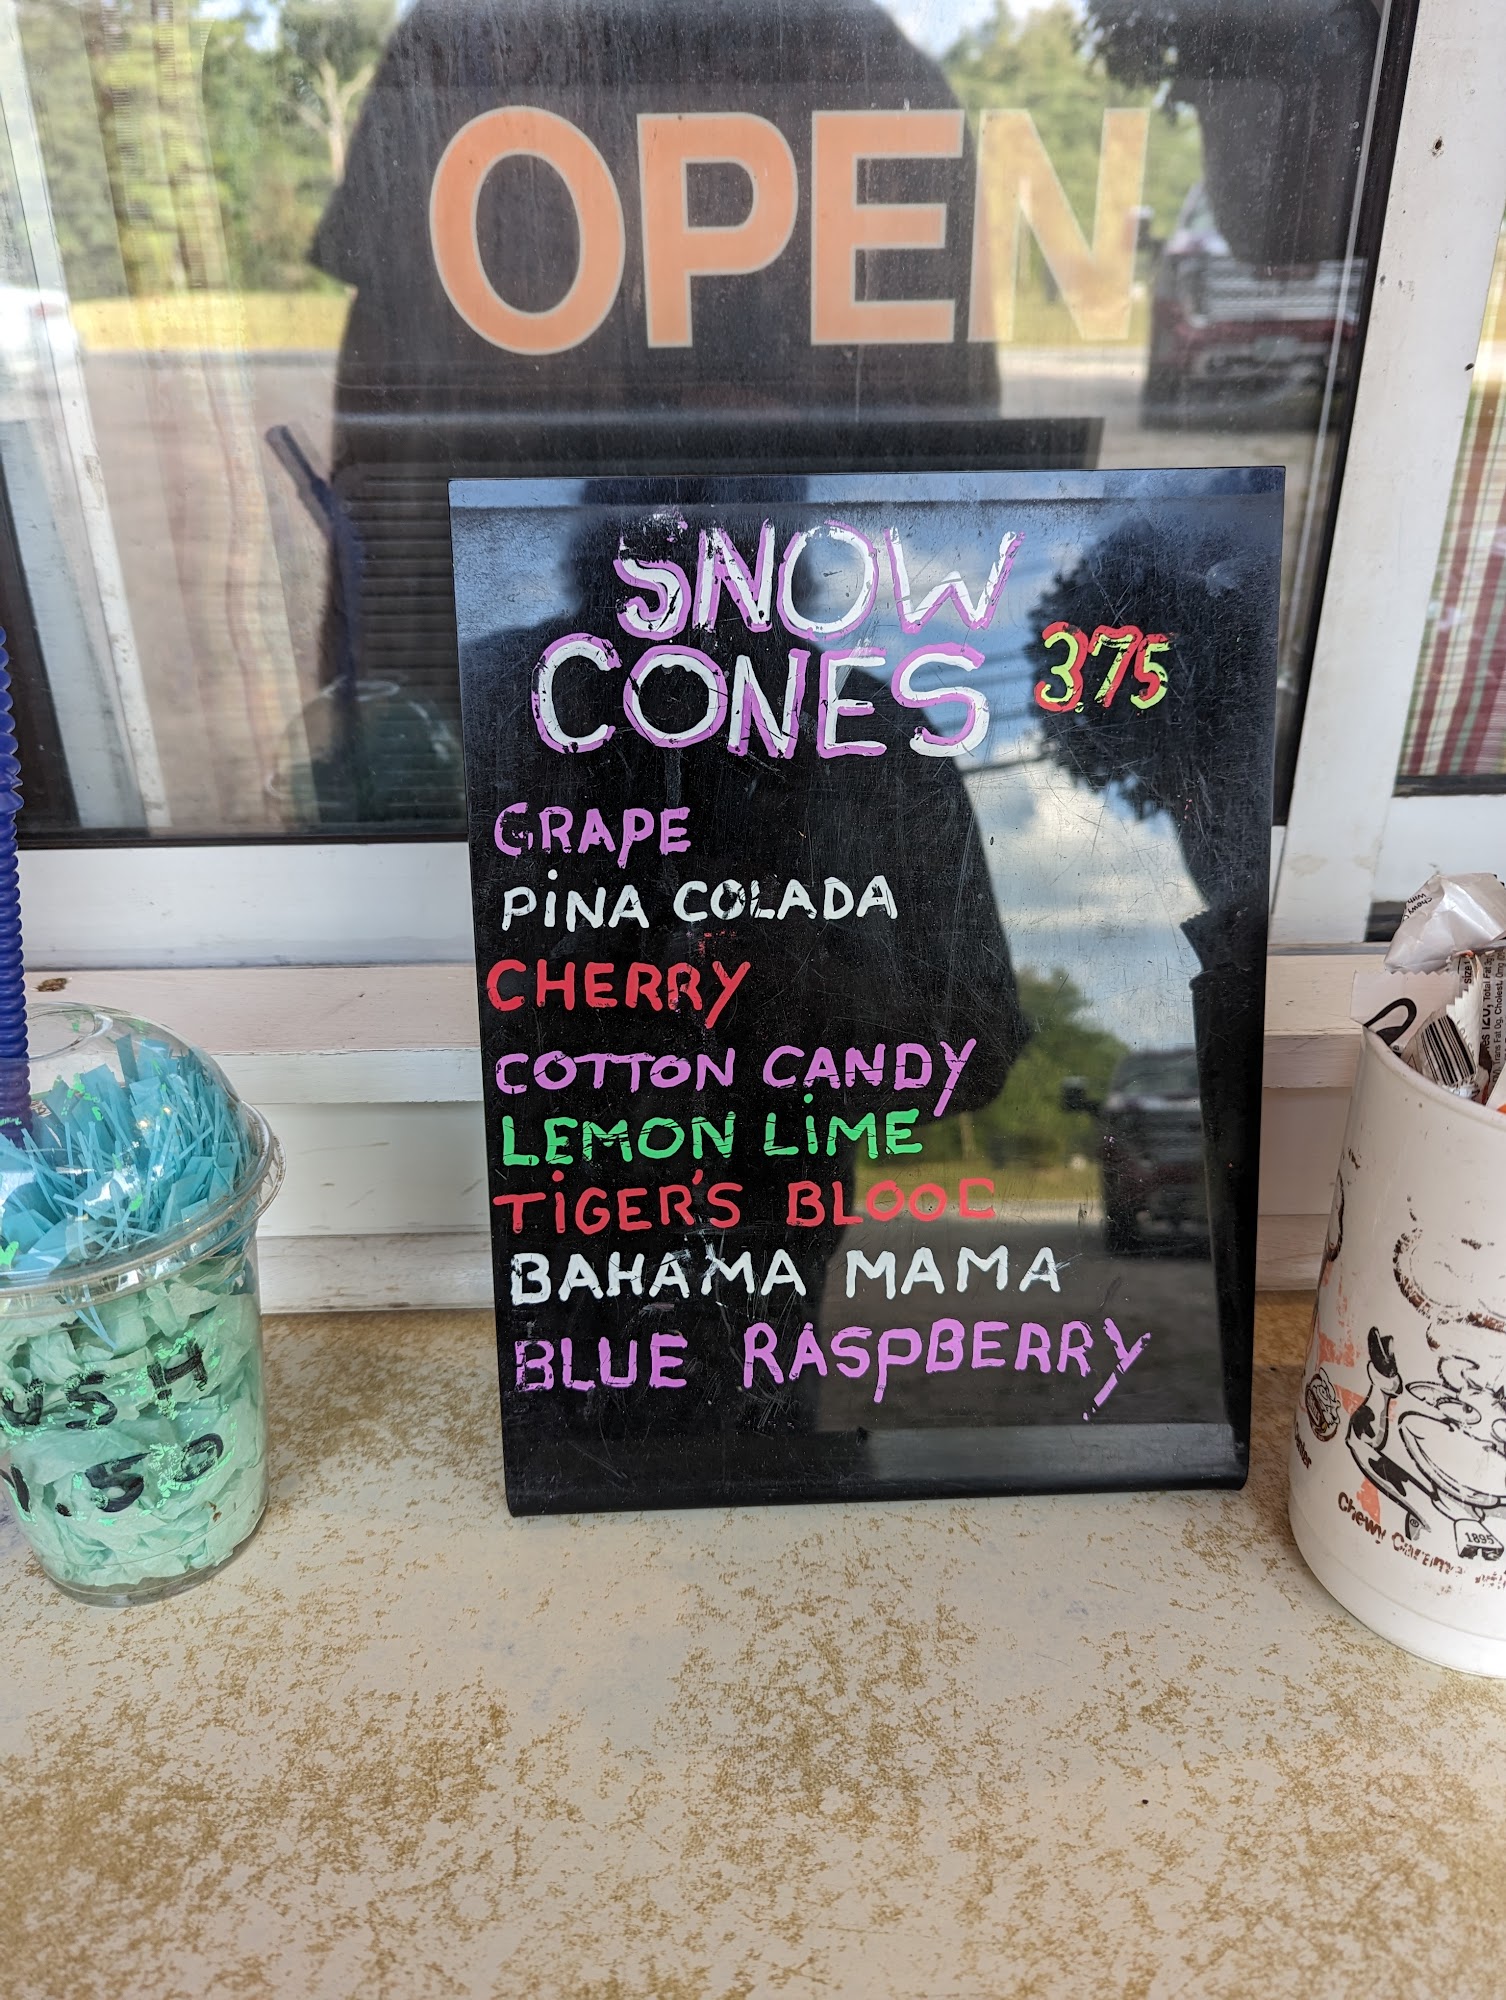 OPEN
SNOW
CONES 3.75
GRAPE
PiNA COLADA
CHERRY
COTTON CANDY
LEMON LiME
TiGER'S BLOOD
BAHAMA MAMA
BLUE RASPBERRY
USH
.50
Chewy
1895